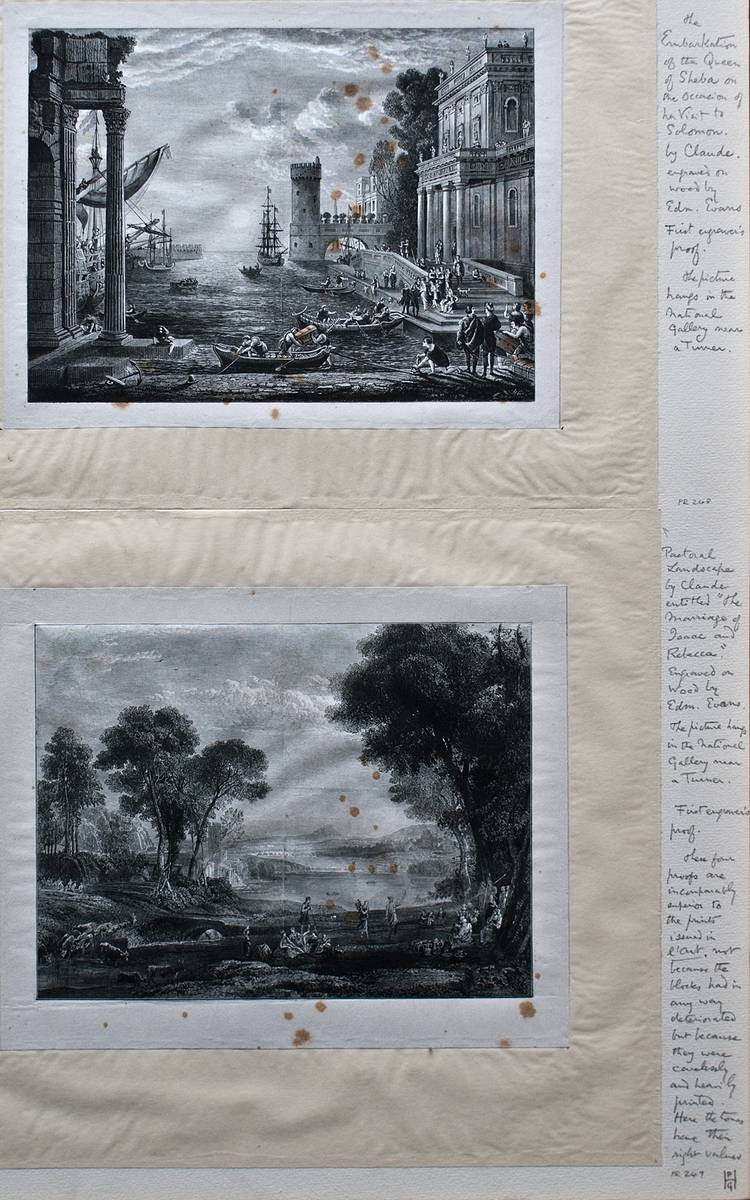 The
Embarkation
of the Queen
of Sheba on
the occasion of
her Visit to
Solomon.
by Claude.
engraved on
wood by
Edm. Evans
First engraver's
proof.
The picture
hangs in the
National
Gallery near
a Turner.
PR 248
Pastoral
Landscape
by Claude
entitled "The
Marriage of
Isaac and
Rebecca".
Engraved on
Wood by
Edm. Evans.
The picture hangs
in the National
Gallery near
a Turner.
First engraver's
proof.
These four
proofs are
incomparably
superior to
the prints
issued in
l'Art, not
because the
blocks had in
any way
deteriorated
but because
they were
carelessly
and heavily
printed.
Here the tones
have their
right values
PR 249